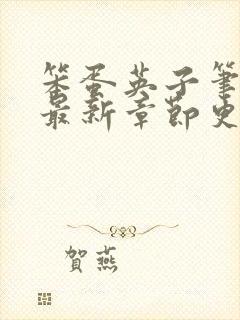 笨蛋英子筆
最新章節更
賀燕